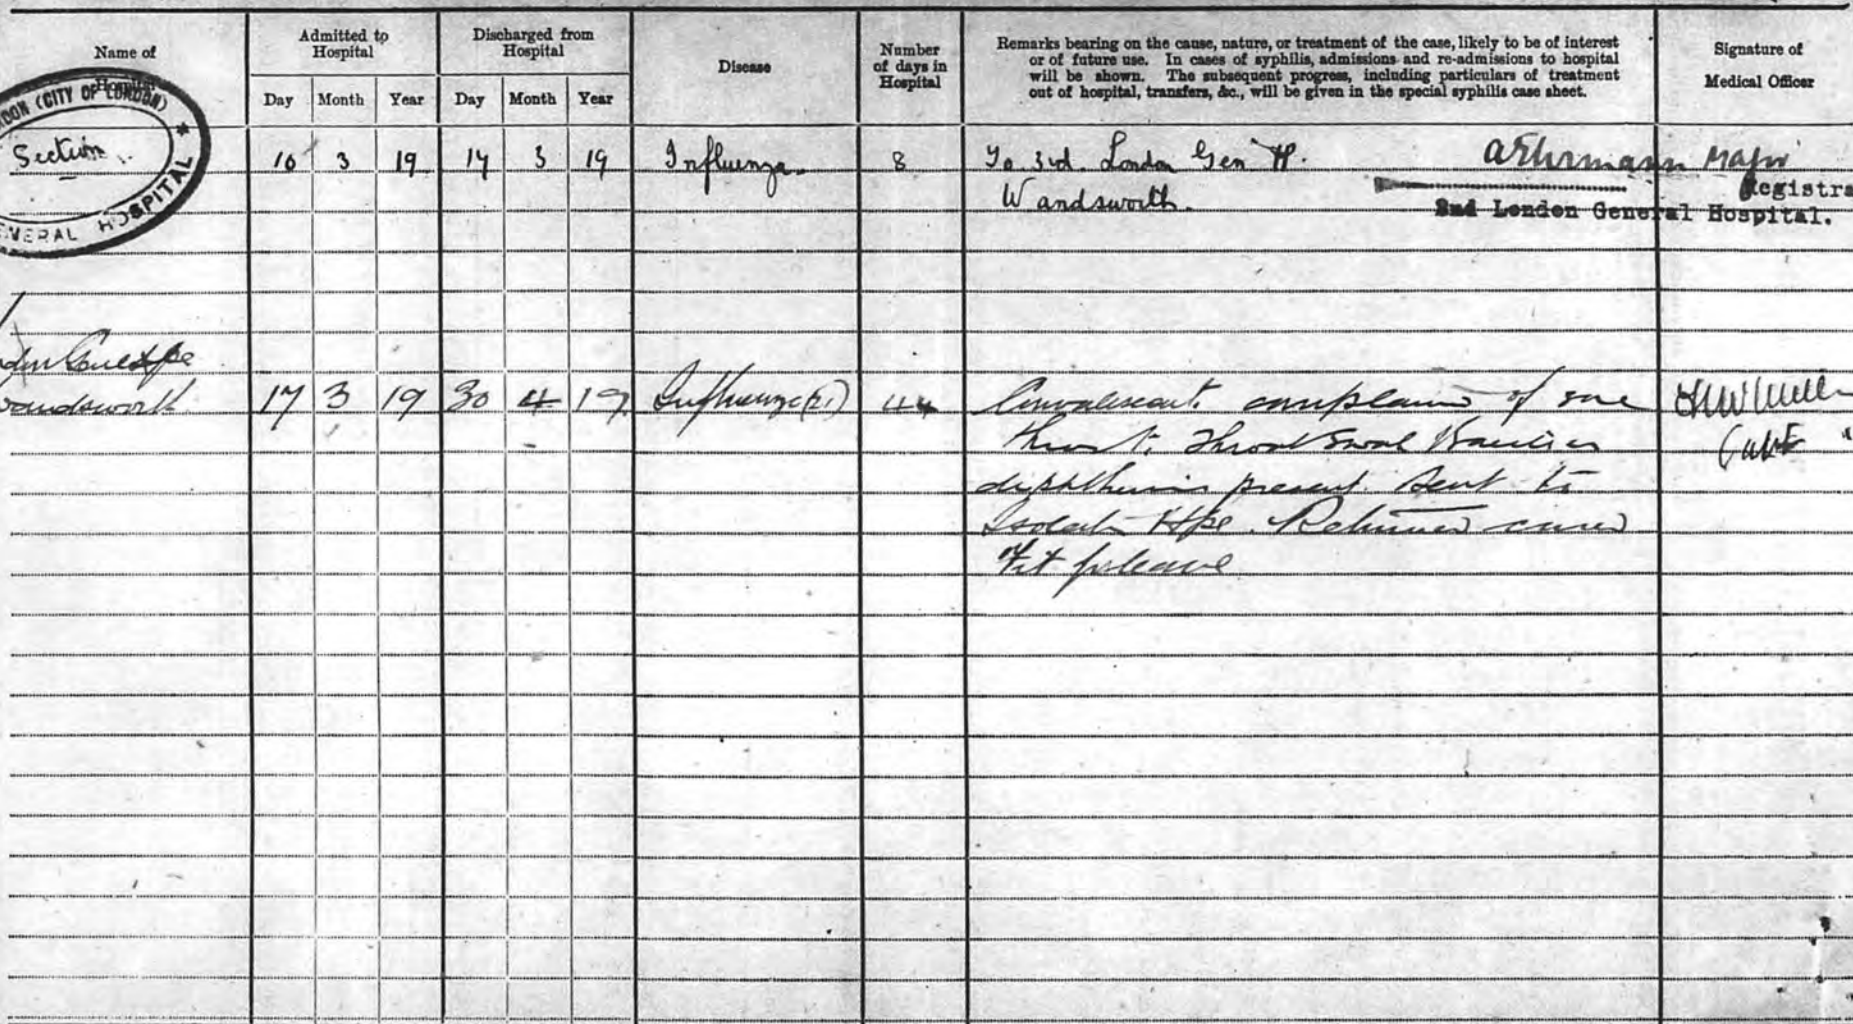 Name of Hospital
Admitted to Hospital
Discharged from Hospital
Disease
Number of days in Hospital
Remarks bearing on the cause, nature, or treatment of the case, likely to be of interest
or of future use. In cases of syphilis, admissions and re-admissions to hospital
will be shown. The subsequent progress, including particulars of treatment
out of hospital, transfers, &c., will be given in the special syphilis case sheet.
Signature of
Medical Officer
Day Month Year Day Month Year
(CITY OF LONDON)
GENERAL HOSPITAL
Section 10 3 19 17 3 19 Influenza. 8 To 3rd. London Gen H. Major
Wandsworth.
Registra
2nd London General Hospital.
Wandsworth 17 3 19 30 4 19 Influenza 44 Convalescent. complained of sore
throat. Throat Swab Bacillus
diphtheria present. Sent to
Isolatn Hpl. Returned cured
Fit for leave
Capt